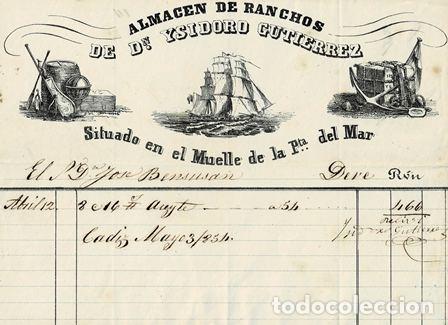 ALMACEN DE RANCHOS
DE Dn. YSIDORO GUTIERREZ
Situado en el Muelle de la Pta. del Mar
El Sr. Dn. José Bensusan Deve Rvn
Abril 12. 8 @ 16 a 54 466
Cadiz Mayo 3/854. Recibi
Gutierrez
todocoleccion